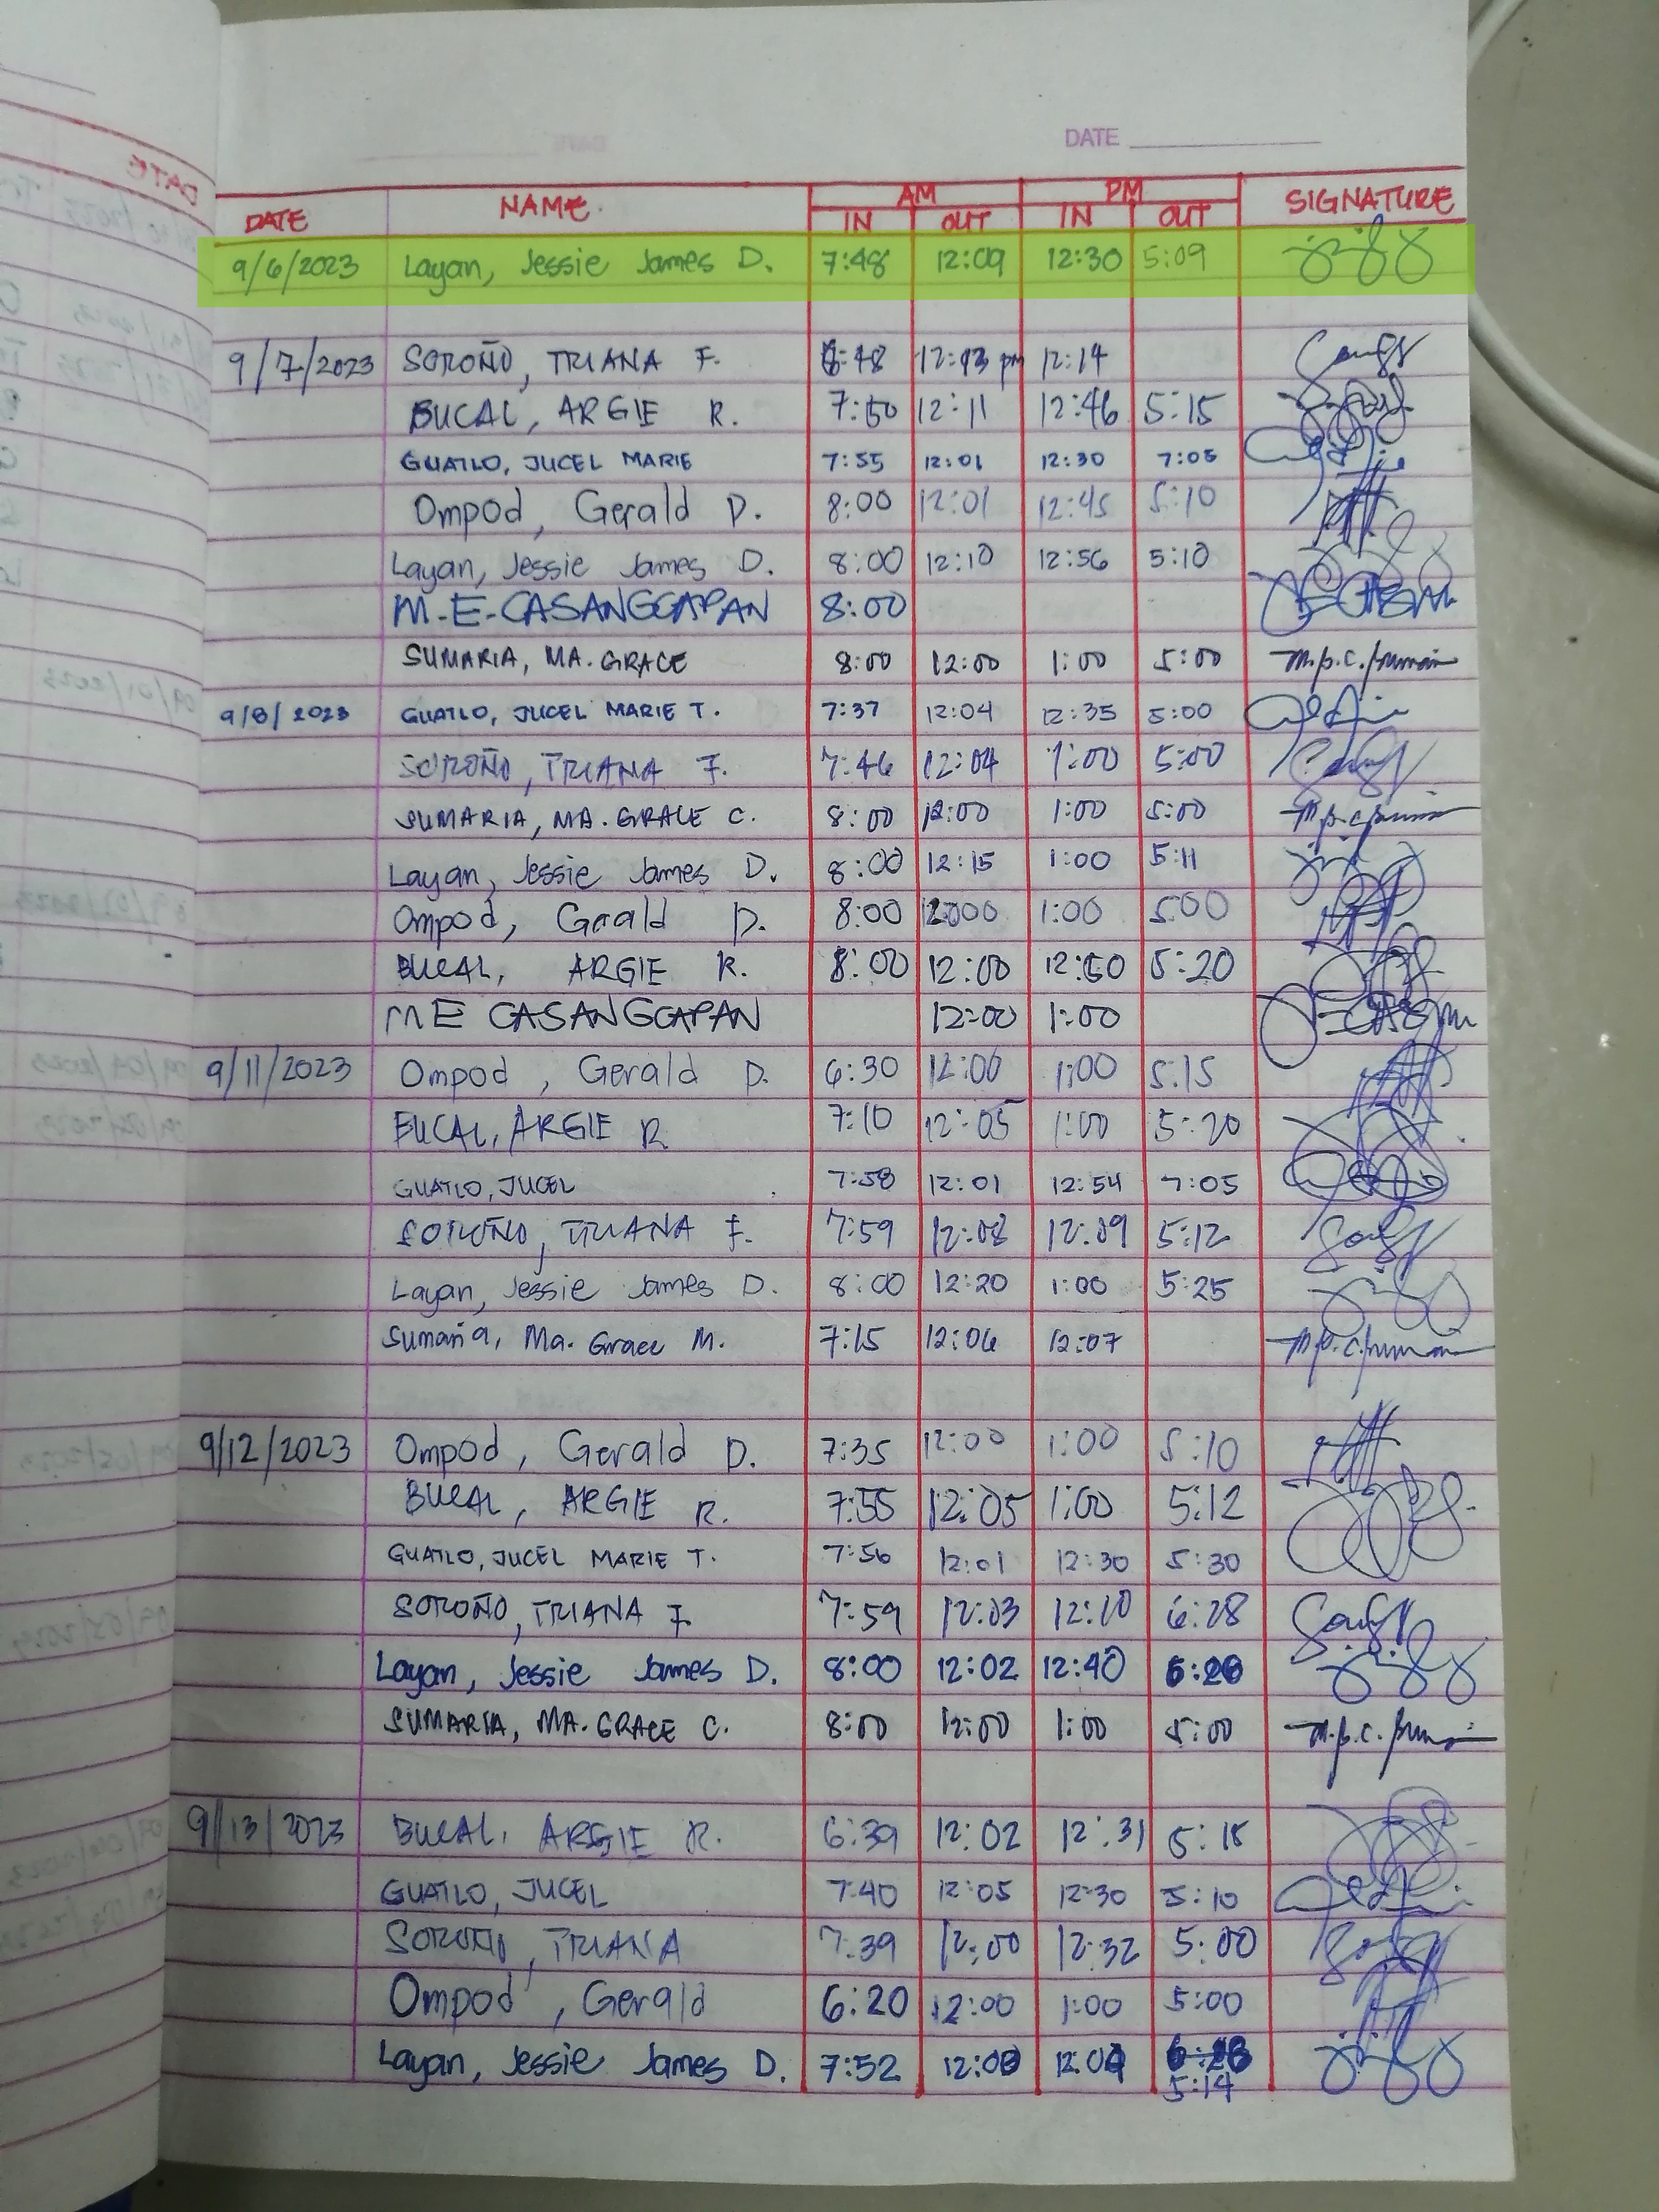 DATE
DATE NAME. AM PM SIGNATURE
IN OUT IN OUT
9/6/2023 Layan, Jessie James D. 7:48 12:09 12:30 5:09
9/7/2023 SOROÑO, TRIANA F. 12:13 pm 12:14
BUCAL, ARGIE R. 7:50 12:11 12:46 5:15
GUATLO, JUCEL MARIE 7:55 12:01 12:30 7:05
Ompod, Gerald D. 8:00 12:01 12:45 5:10
Layan, Jessie James D. 8:00 12:10 12:56 5:10
M.E. CASANGCAPAN 8:00
SUMARIA, MA. GRACE 8:00 12:00 1:00 5:00
9/8/2023 GUATLO, JUCEL MARIE T. 7:37 12:04 12:35 5:00
SOROÑO, TRIANA F. 7:46 12:04 1:00 5:00
SUMARIA, MA. GRACE C. 8:00 12:00 1:00 5:00
Layan, Jessie James D. 8:00 12:15 1:00 5:11
Ompod, Gerald D. 8:00 1:00 5:00
BUCAL, ARGIE R. 8:00 12:00 12:50 5:20
M E CASANGCAPAN 12:00 1:00
9/11/2023 Ompod, Gerald D. 6:30 12:00 1:00 5:15
BUCAL, ARGIE R 7:10 12:05 1:00 5:20
GUATLO, JUCEL 7:58 12:01 12:54 7:05
SOROÑO, TRIANA F. 7:59 12:08 12:09 5:12
Layan, Jessie James D. 8:00 12:20 1:00 5:25
Sumaria, Ma. Grace M. 7:15 12:06 12:07
9/12/2023 Ompod, Gerald D. 7:35 12:00 1:00 5:10
BUCAL, ARGIE R. 7:55 12:05 1:00 5:12
GUATLO, JUCEL MARIE T. 7:56 12:01 12:30 5:30
SOROÑO, TRIANA F. 7:59 12:03 12:10 6:28
Layan, Jessie James D. 8:00 12:02 12:40
SUMARIA, MA. GRACE C. 8:00 12:00 1:00 5:00
9/13/2023 BUCAL, ARGIE R. 6:39 12:02 12:31 5:15
GUATLO, JUCEL 7:40 12:05 12:30 5:10
SOROÑO, TRIANA 7:39 12:00 12:32 5:00
Ompod, Gerald 6:20 12:00 1:00 5:00
Layan, Jessie James D. 7:52
5:14